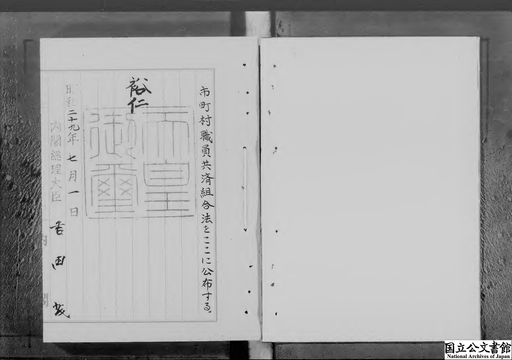 市町村職員共済組合法をここに公布する。
裕仁
天皇
御璽
昭和二十九年七月一日
内閣総理大臣 吉田茂
内閣
国立公文書館
National Archives of Japan